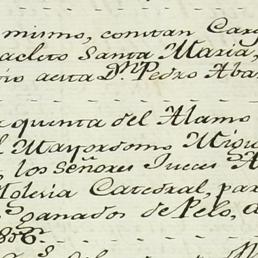 mismo, constan Car
acleto Santa Maria,
acta D.ⁿ Pedro Aba
quenta del Alamo
Mayordomo Migu
los Señores Jueces
Yglesia Catedral, par
ganados de Pelo,